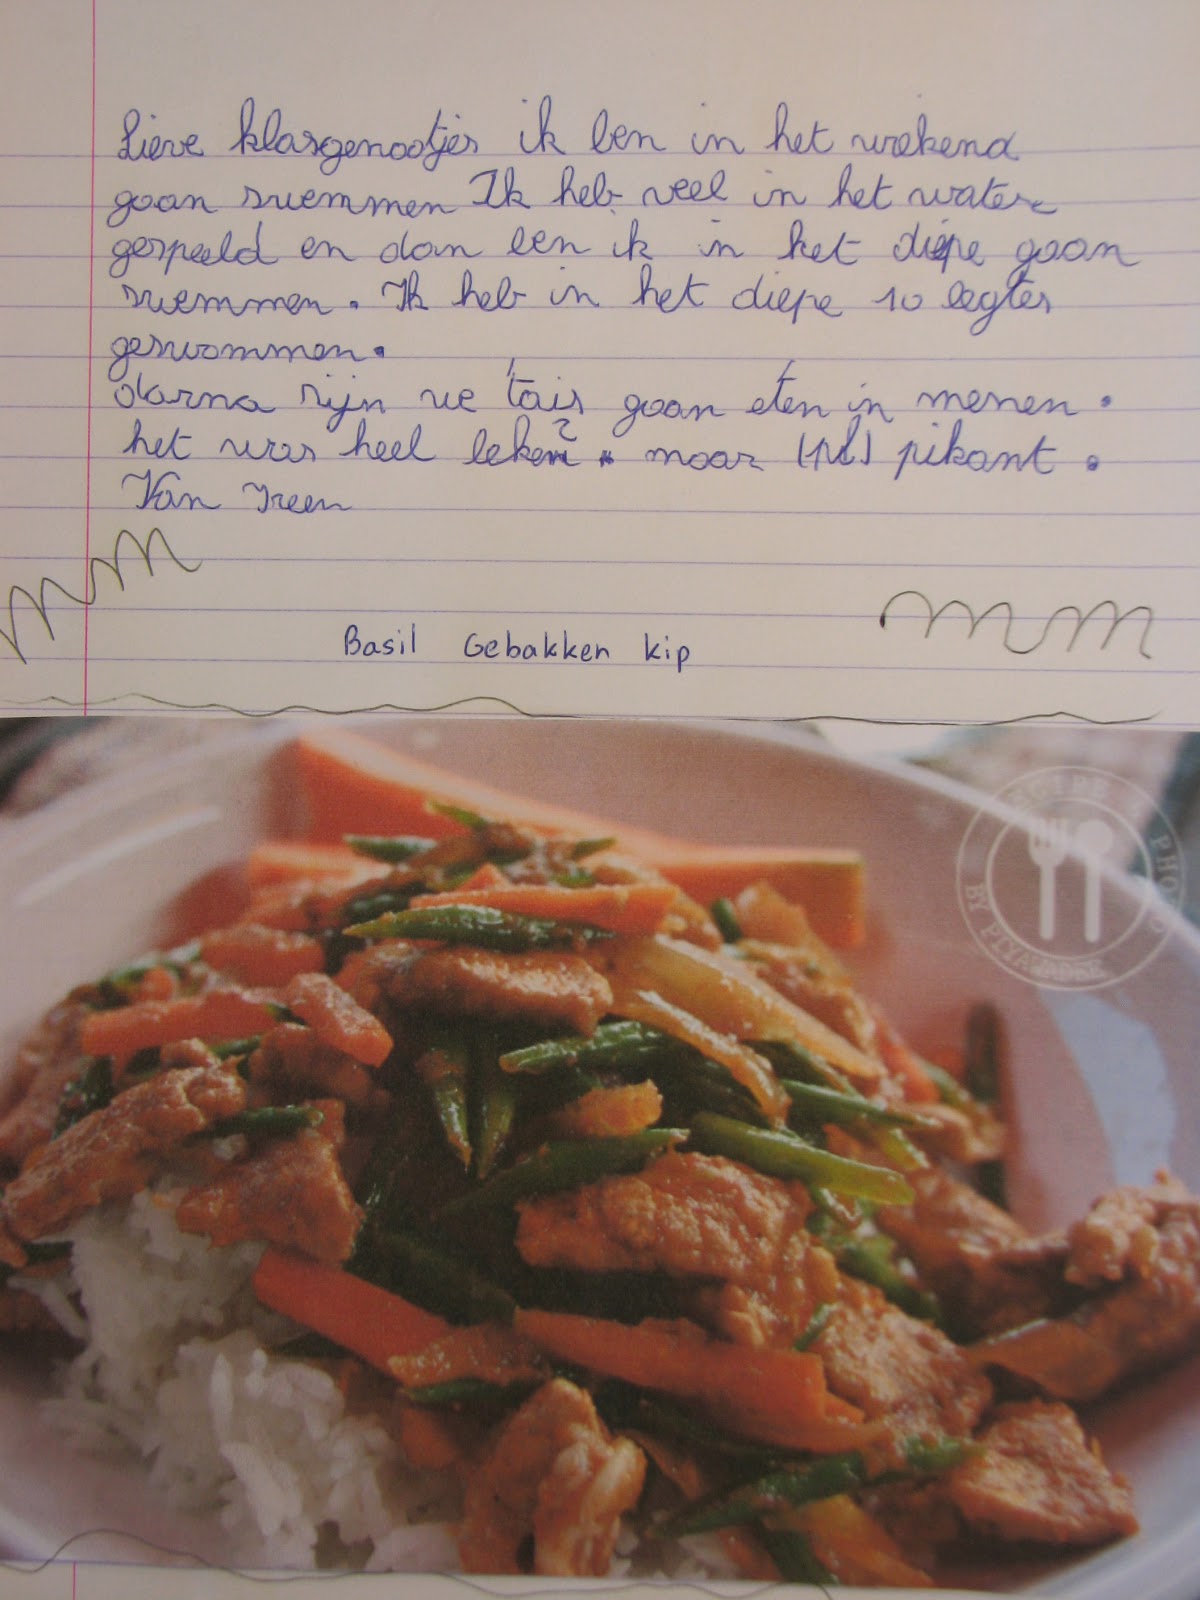 Lieve klasgenootjes ik ben in het wiekend
gaan swemmen Ik heb veel in het water
gespeeld en dan ben ik in het diepe gaan
swemmen. Ik heb in het diepe 10 legtes
geswommen.
darna zijn we tais gaan eten in menen.
het was heel leker. maar pikant.
Van Ireen
mm
mm
Basil Gebakken kip
RECIPE & PHOTO
BY